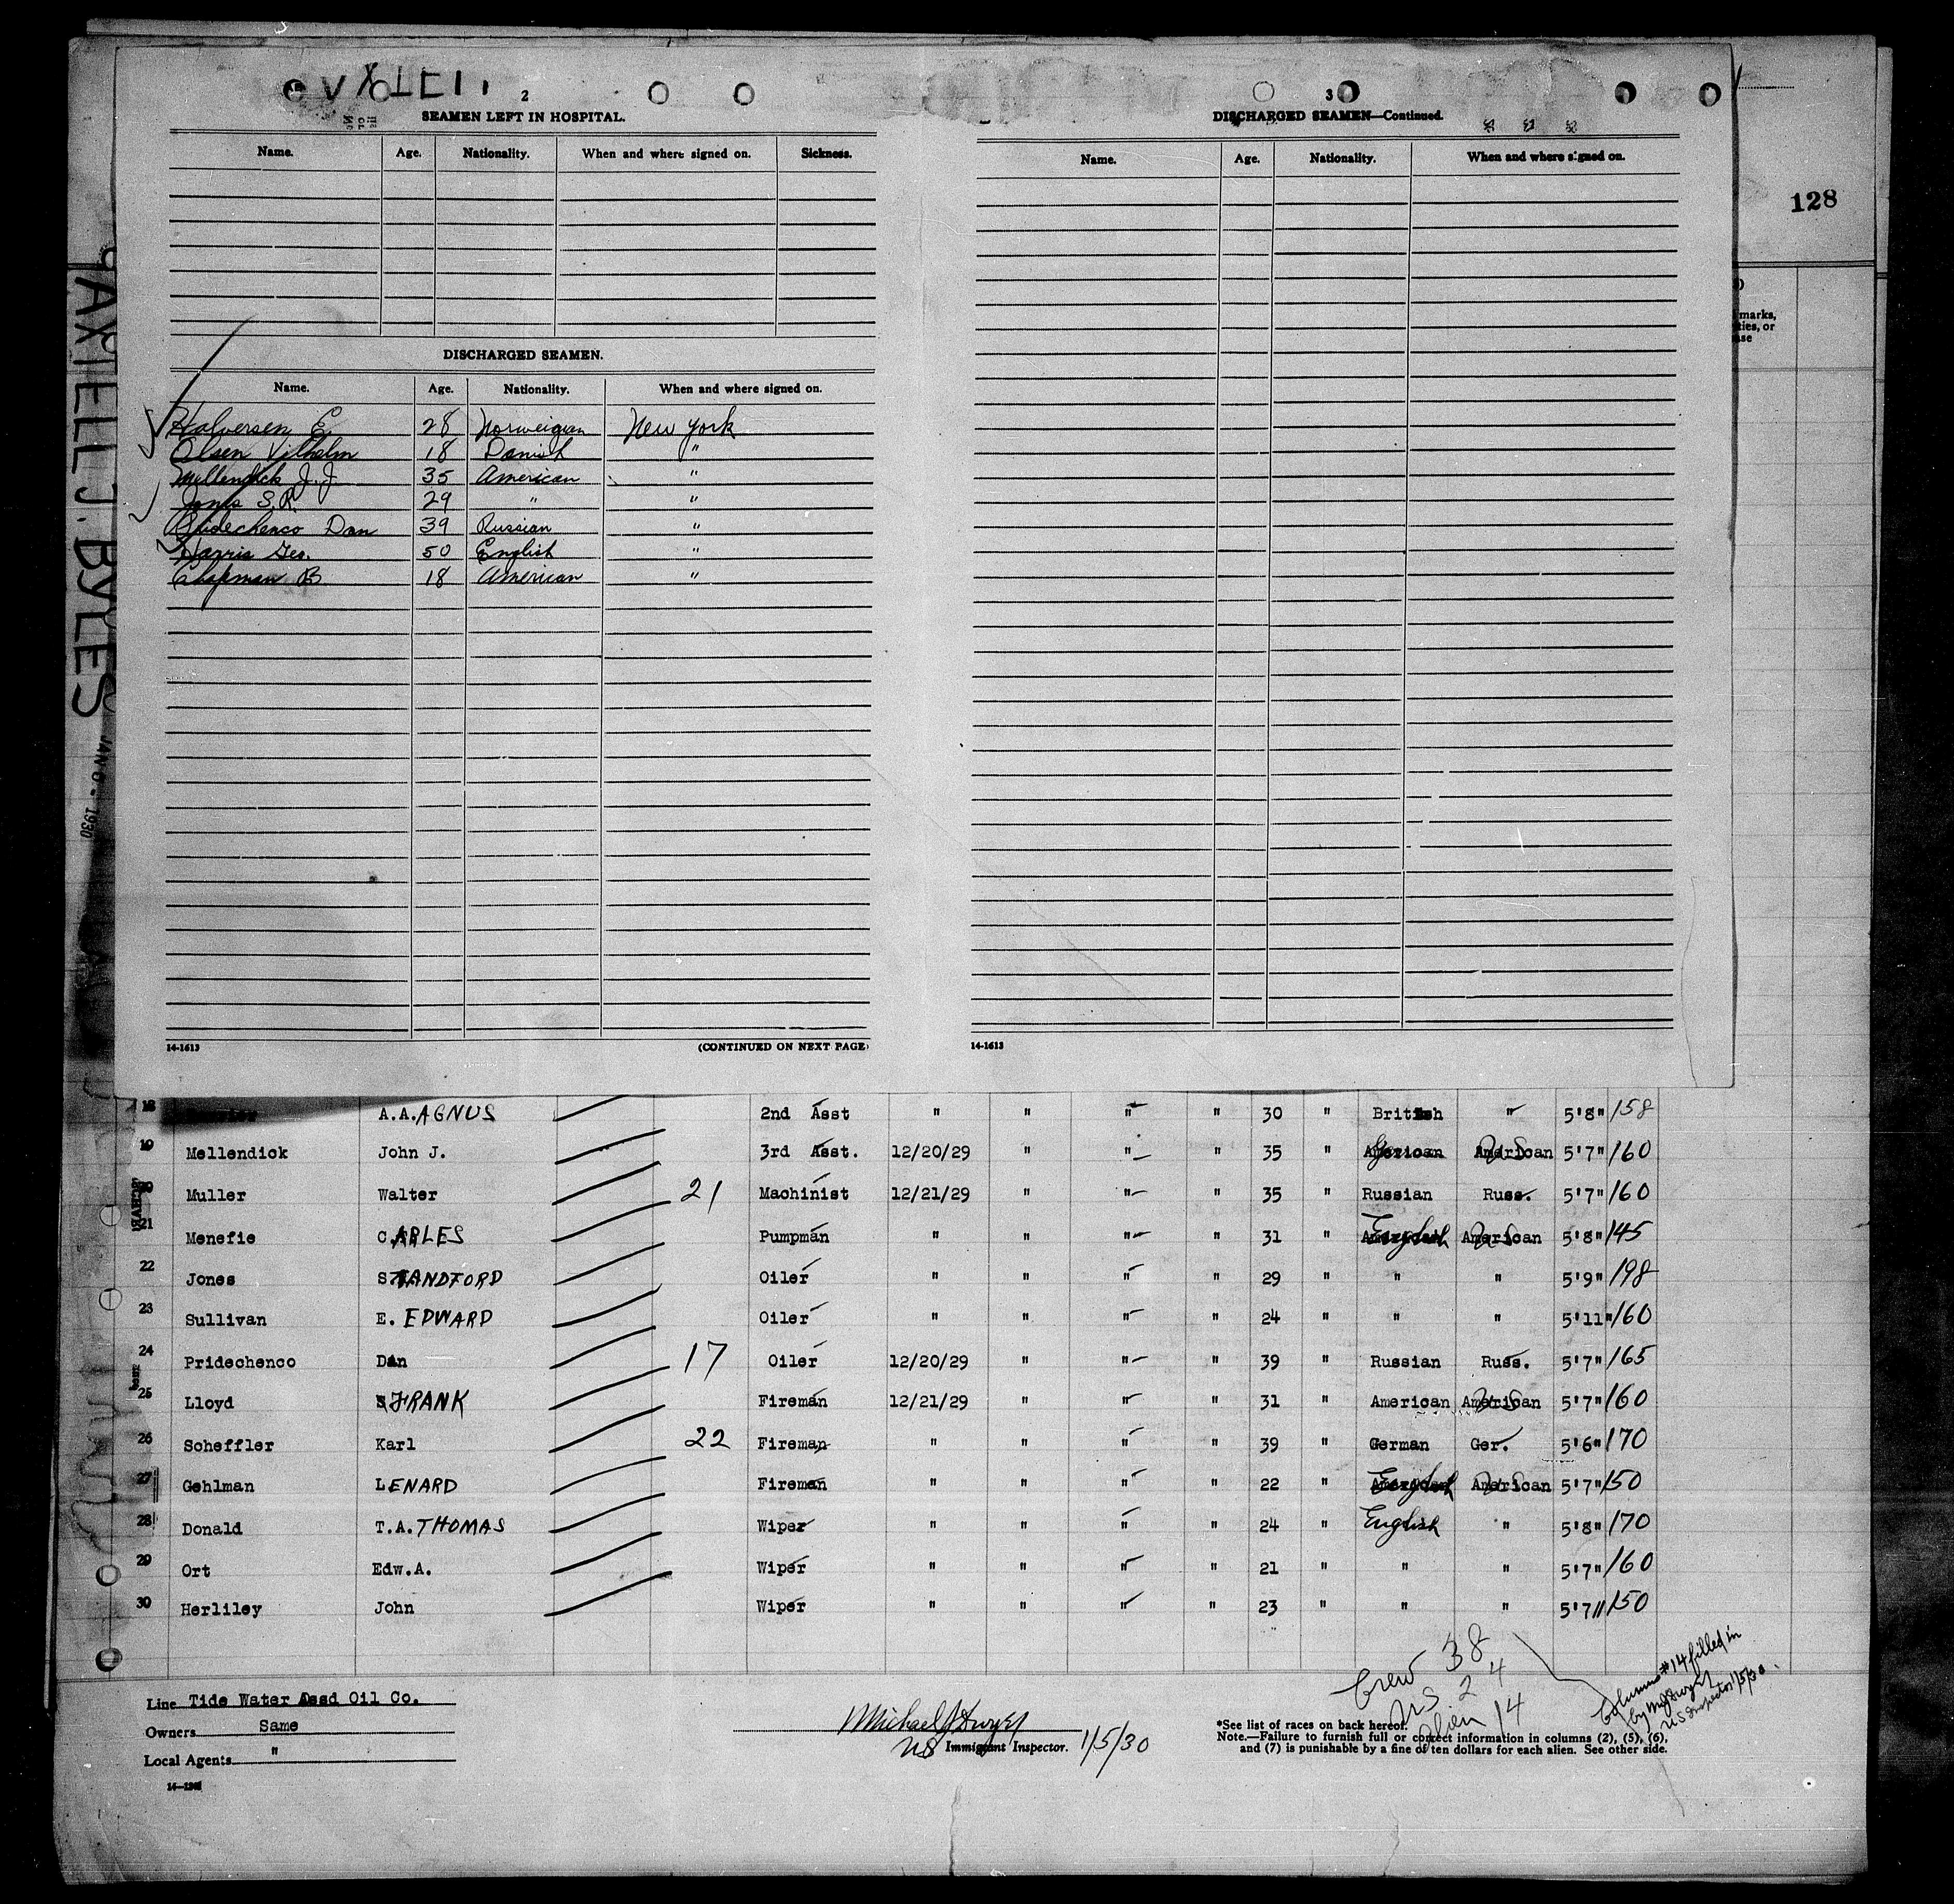 2
SEAMEN LEFT IN HOSPITAL.
Name. Age. Nationality. When and where signed on. Sickness.
DISCHARGED SEAMEN.
Name. Age. Nationality. When and where signed on.
Halversen E. 28 Norweigian New York
Olsen Vilhelm 18 Danish "
Mellendick J.J. 35 American "
Jones S.R. 29 " "
Pridechenco Dan 39 Russian "
Harris Geo. 50 English "
Chapman B. 18 American "
14-1613 (CONTINUED ON NEXT PAGE)
3
DISCHARGED SEAMEN—Continued.
Name. Age. Nationality. When and where signed on.
14-1613
128
marks,
ties, or
AXTELL J. BYLES
1930
18 A.A. AGNUS 2nd Asst " " " " 30 " British " 5'8" 158
19 Mellendick John J. 3rd Asst. 12/20/29 " " " 35 " American American 5'7" 160
20 Muller Walter 21 Machinist 12/21/29 " " " 35 " Russian Russ. 5'7" 160
21 Menefie CARLES Pumpman " " " " 31 " English American 5'8" 145
22 Jones STANDFORD Oiler " " " " 29 " " " 5'9" 198
23 Sullivan E. EDWARD Oiler " " " " 24 " " " 5'11" 160
24 Pridechenco Dan 17 Oiler 12/20/29 " " " 39 " Russian Russ. 5'7" 165
25 Lloyd FRANK Fireman 12/21/29 " " " 31 " American American 5'7" 160
26 Scheffler Karl 22 Fireman " " " " 39 " German Ger. 5'6" 170
27 Gehlman LENARD Fireman " " " " 22 " English American 5'7" 150
28 Donald T.A. THOMAS Wiper " " " " 24 " English " 5'8" 170
29 Ort Edw.A. Wiper " " " " 21 " " " 5'7" 160
30 Herliley John Wiper " " " " 23 " " " 5'7" 150
Crew 38
US 24
Alien 14
Columns #14 filled in
by M J Dwyer
US Inspector 1/5/30.
Line Tide Water Assd Oil Co.
Owners Same
Local Agents "
Michael J Dwyer
US Immigrant Inspector. 1/5/30
*See list of races on back hereof.
Note.—Failure to furnish full or correct information in columns (2), (5), (6),
and (7) is punishable by a fine of ten dollars for each alien. See other side.